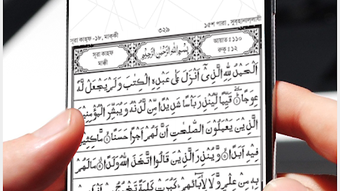 সূরা কাহফ -১৮, মাক্কী ৩২৯ ১৫শ পারা , সুবহানাল্লাযী
সূরা কাহফ بِسْمِ اللهِ الرَّحْمٰنِ الرَّحِيْمِ আয়াত : ১১০
মাক্কী রুকু : ১২
اَلْحَمْدُ لِلّٰهِ الَّذِىْٓ اَنْزَلَ عَلٰى عَبْدِهِ الْكِتٰبَ وَلَمْ يَجْعَلْ لَّهٗ
عِوَجًا قَيِّمًا لِّيُنْذِرَ بَاْسًا شَدِيْدًا مِّنْ لَّدُنْهُ وَيُبَشِّرَ الْمُؤْمِنِيْنَ
الَّذِيْنَ يَعْمَلُوْنَ الصّٰلِحٰتِ اَنَّ لَهُمْ اَجْرًا حَسَنًا مَّاكِثِيْنَ
فِيْهِ اَبَدًا وَّيُنْذِرَ الَّذِيْنَ قَالُوا اتَّخَذَ اللهُ وَلَدًا مَا لَهُمْ
بِهٖ مِنْ عِلْمٍ وَّلَا لِاٰبَآئِهِمْ كَبُرَتْ كَلِمَةً تَخْرُجُ